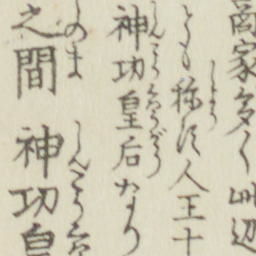 商家多く此辺
とも称す人王十
神功皇后なり
之間 神功皇